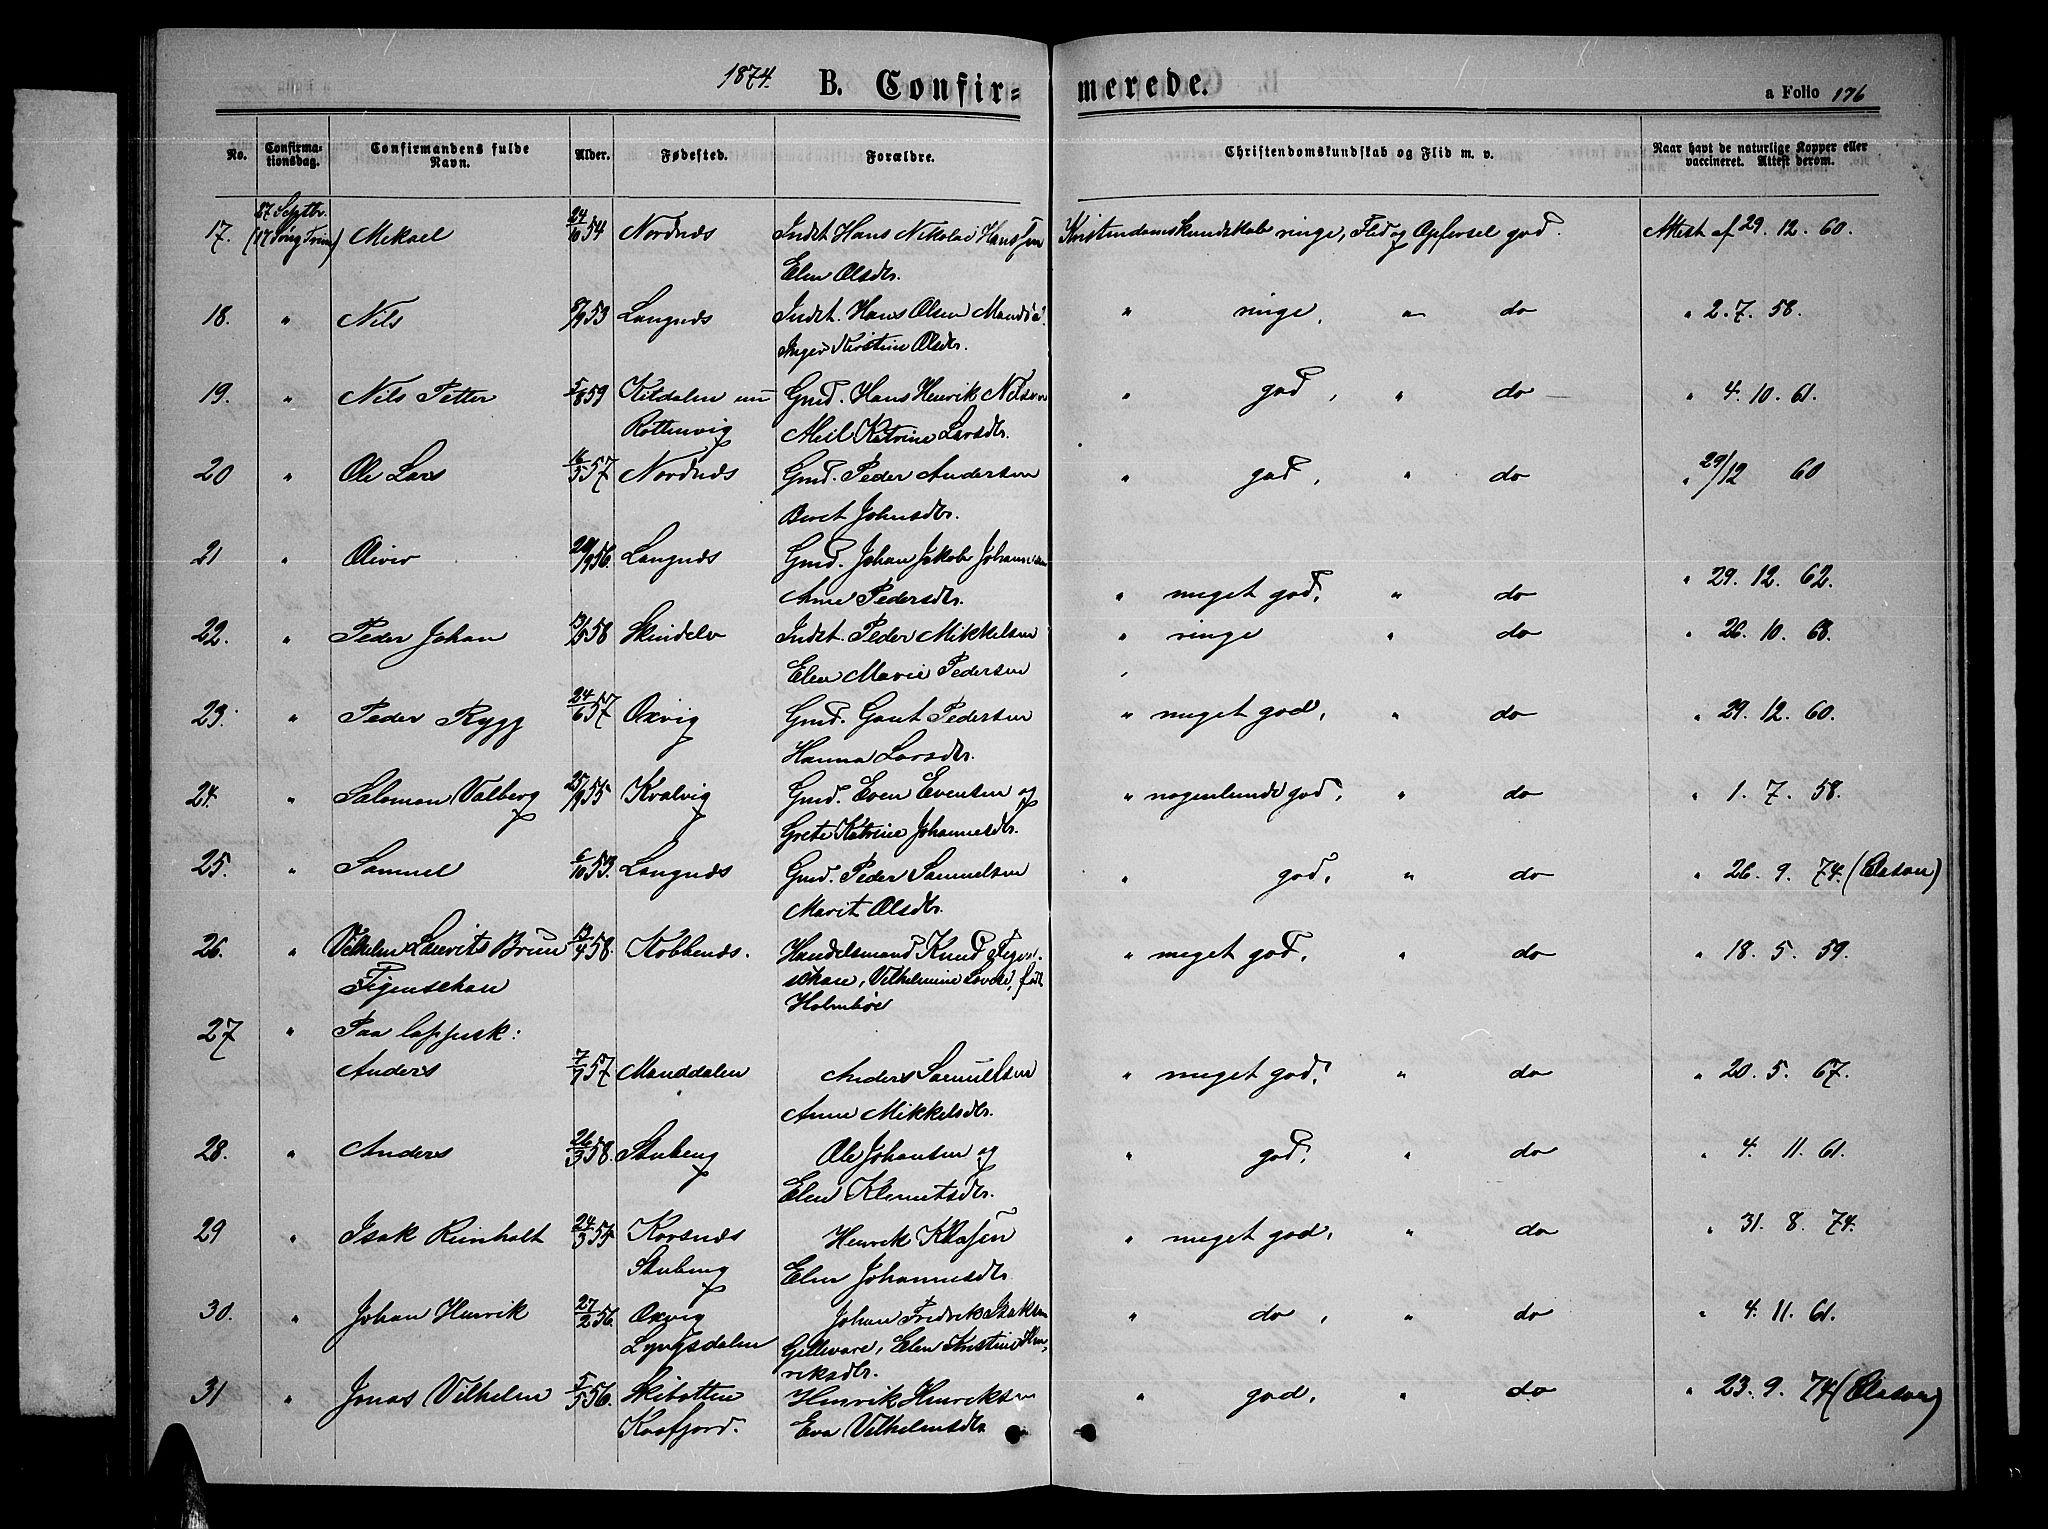 1874. B. Confir= merede. a Folio 176
No. Confirma-tionsdag. Confirmandens fulde Navn. Alder. Fødested. Forældre. Christendomskundskab og Flid m. v. Naar havt de naturlige Kopper eller vaccineret. Attest derom.
27 Septbr.
17. Mikael 24/10 54 Nordnæs Indst. Hans Nikolai Hanssen Kristendomskundskab ringe, Flid og Opførsel god. Attest af 29. 12. 60.
Elen Olsdtr.
18. " Nils 8/9 53 Langnæs Indst. Hans Olsen " ringe, " do " 2. 7. 58.
Inger Kirstine Olsdtr.
19. " Nils Petter 5/8 59 Kitdalen nu Gmd. Hans Henrik Nilsen " god, " do " 4. 10. 61.
Rottenvig Katrine Larsdtr.
20 " Ole Lars 16/5 57 Nordnæs Gmd. Peder Andersen " god, " do " 29/12 60
Beret Johnsdtr.
21 " Oliver 20/9 56. Langnæs Gmd. Johan Jakob Johannesen
Anne Pedersdtr. " meget god, " do " 29. 12. 62.
22. " Peder Johan 58 Skindelv Indst. Peder Mikkelsen " ringe " do " 26. 10. 68.
Elen Marie Pedersen
23. " Peder Rygg 24/6 57 Oxvig Gmd. Gaut Pedersen " meget god, " do " 29. 12. 60.
Hanna Larsdtr.
24. " Salomon Valberg 25/9 55 Kvalvig Gmd. Even Evensen og " nogenlunde god, " do " 1. 7. 58.
Grete Katrine Johannesdtr.
25. " Samuel 6/10 53. Langnæs Gmd. Peder Samuelsen " god, " do " 26. 9. 74. (Elason)
Marit Olsdtr.
26. " Vilhelm Lauvits Brun 13/4 58. Kobbenæs. Handelsmand Knud Figen- " meget god, " do " 18. 5. 59.
Figenschau schau, Vilhelmine Lovise, født
Holmbøe
27 " Paa lappisk:
Anders 7/1 57 Manddalen Anders Samuelsen " meget god, " do " 20. 5. 67.
Anne Mikkelsdtr.
28. " Anders 26/3 58. Stubeng Ole Johansen og " god, " do " 4. 11. 61.
Elen Klemetsdtr.
29 " Isak Reinholt 24/3 55 Korsnæs Henrik " meget god, " do " 31. 8. 74.
Stubeng Elen Johannesdtr.
30. " Johan Henrik 27/2 56. Oxvig Johan Fredrik Isaksen " do, " do " 4. 11. 61.
Lyngsdalen Gellivare, Elen Kristine Hen-
riksdtr.
31 " Jonas Vilhelm 5/5 56. Skibotten Henrik Henriksen " god, " do " 23. 9. 74 (Elason)
Kaafjord. Eva Vilhelmsdtr